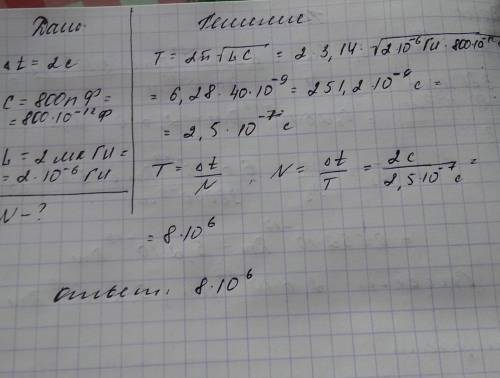 Дано:
Δt = 2с
C = 800пФ =
= 800·10⁻¹²Ф
L = 2 мкГн =
= 2·10⁻⁶ Гн
N - ?
Решение
T = 2π√LC = 2·3,14·√2·10⁻⁶Гн·800·10⁻¹²
= 6,28·40·10⁻⁹ = 251,2·10⁻⁹ с =
= 2,5·10⁻⁷ с
T = Δt/N , N = Δt/T = 2с/2,5·10⁻⁷с =
= 8·10⁶
ответ. 8·10⁶